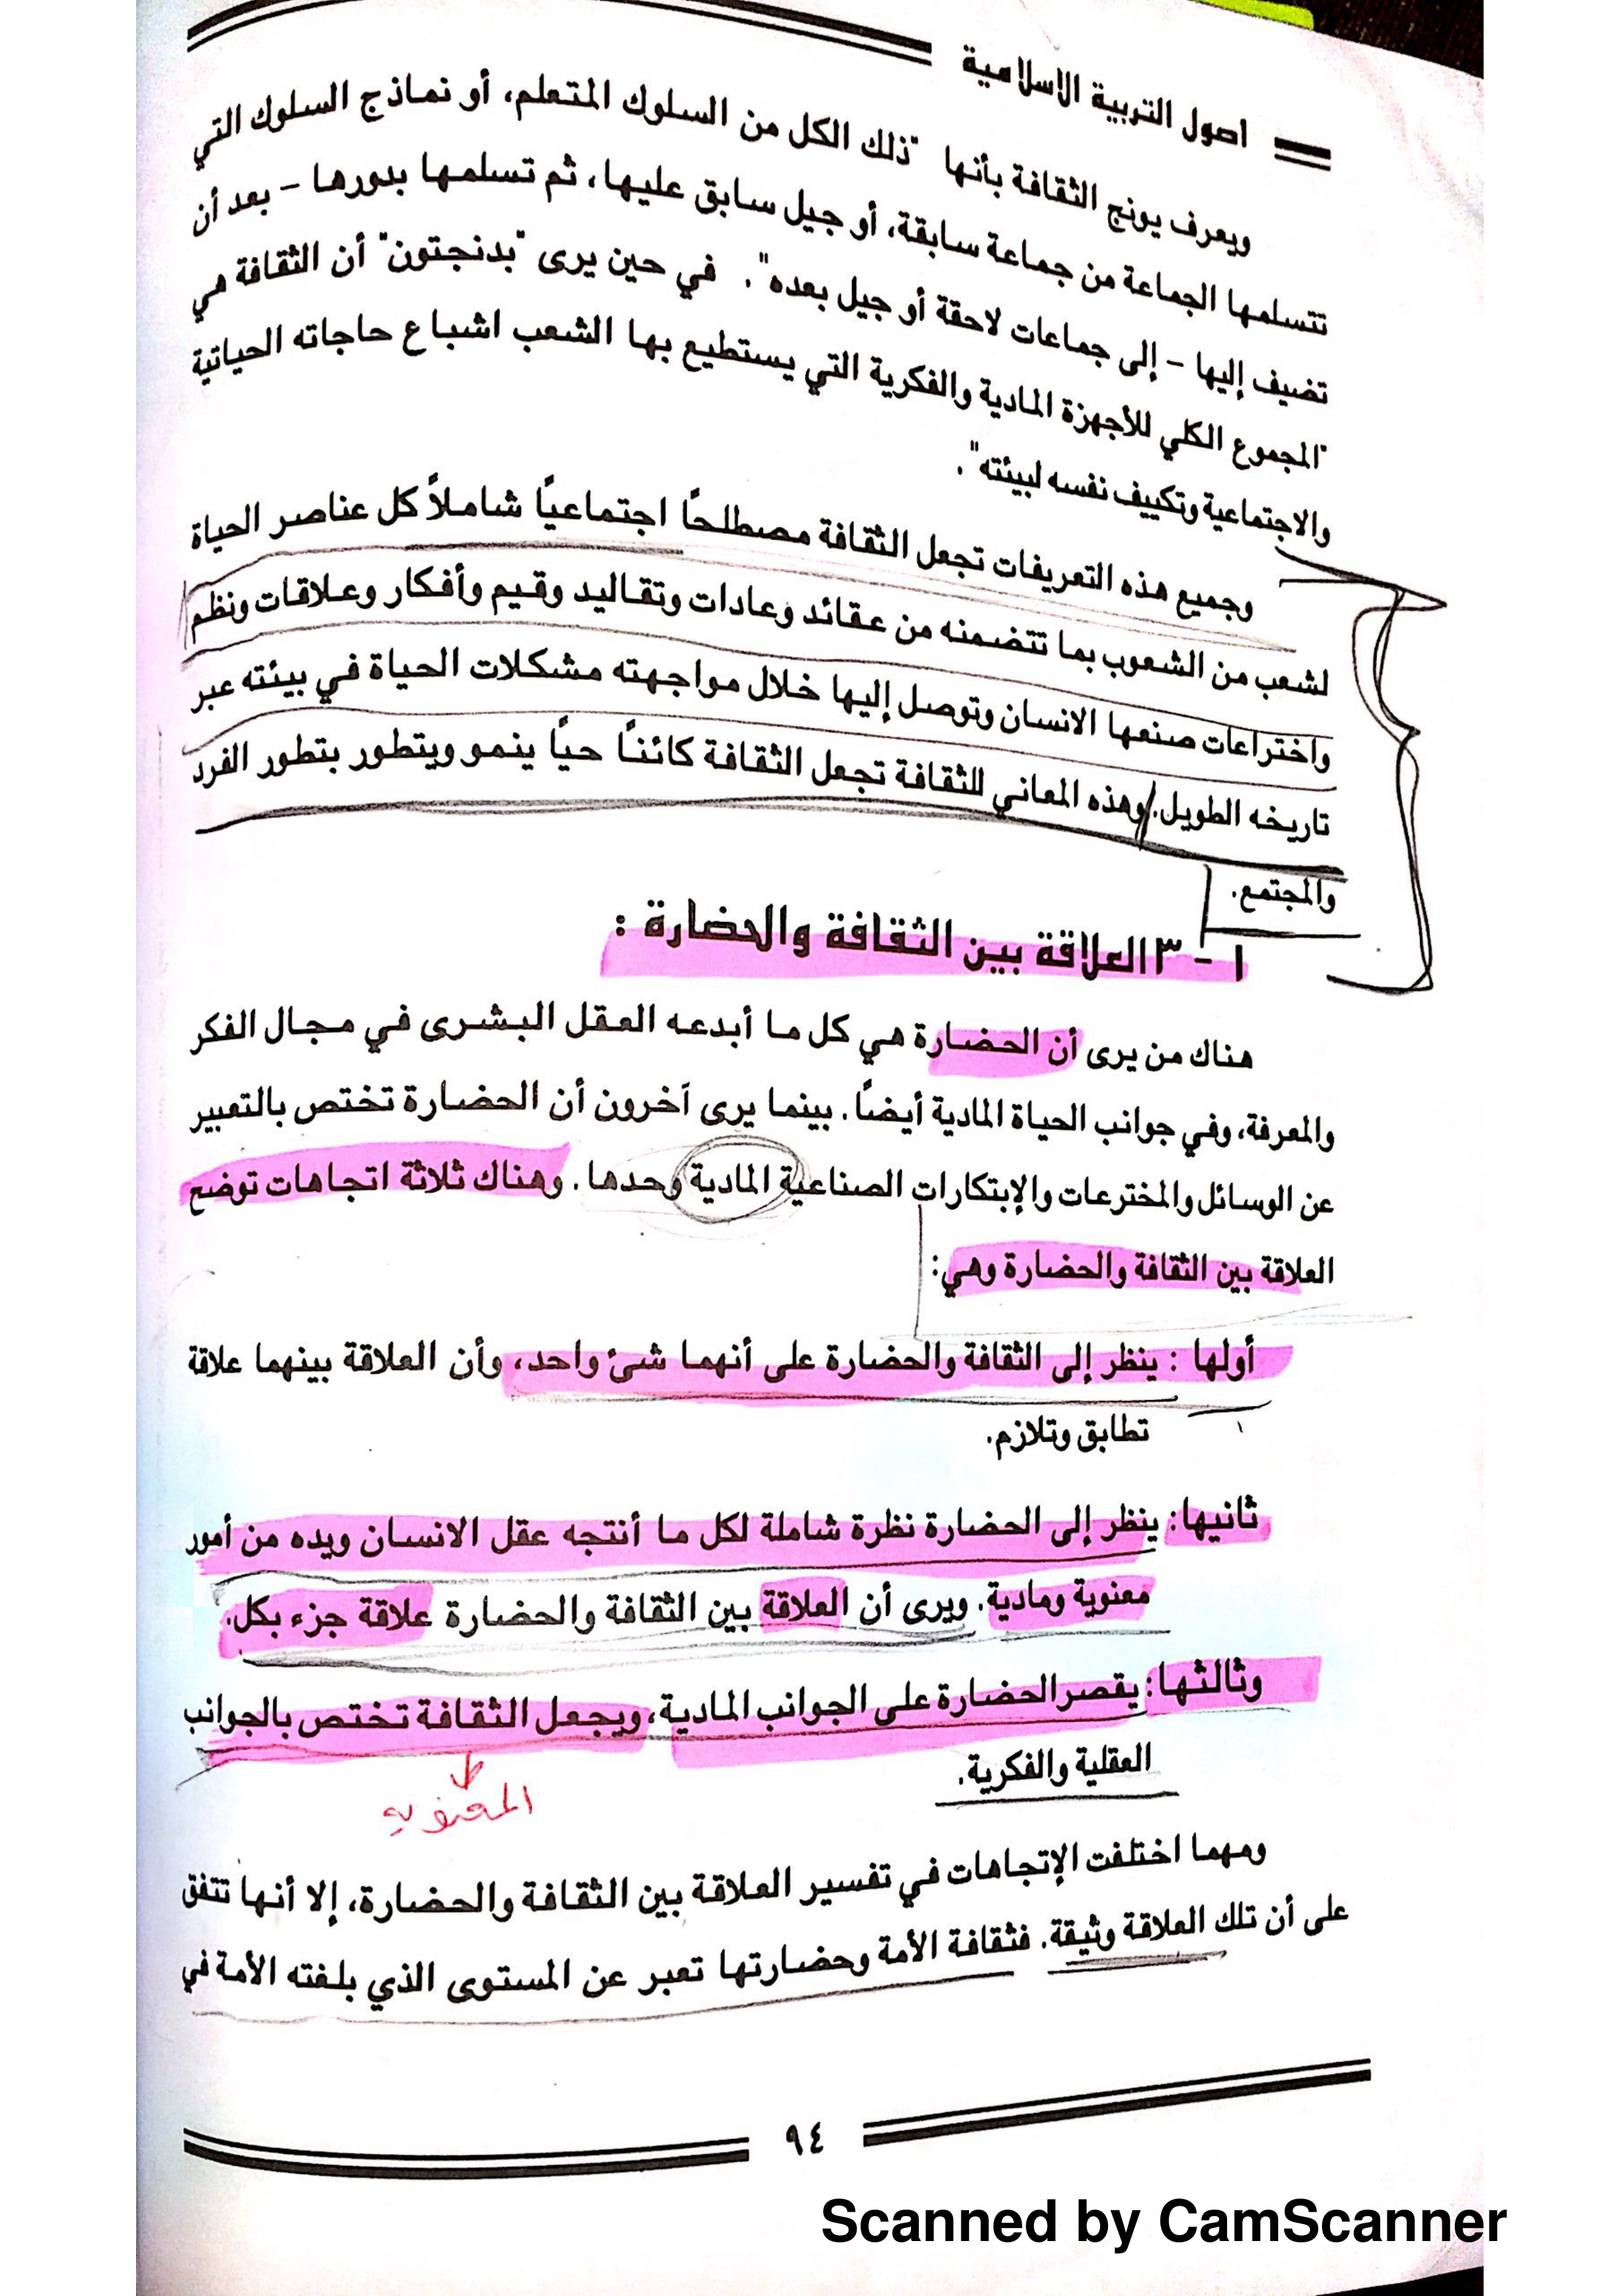 اصول التربية الاسلامية
ويعرف يونج الثقافة بأنها "ذلك الكل من السلوك المتعلم، أو نماذج السلوك التي
تتسلمها الجماعة من جماعة سابقة، أو جيل سابق عليها، ثم تسلمها بدورها – بعد أن
تضيف إليها – إلى جماعات لاحقة أو جيل بعده". في حين يرى "بدنجتون" أن الثقافة هي
"المجموع الكلي للأجهزة المادية والفكرية التي يستطيع بها الشعب اشباع حاجاته الحياتية
والاجتماعية وتكييف نفسه لبيئته".
وجميع هذه التعريفات تجعل الثقافة مصطلحًا اجتماعيًا شاملاً كل عناصر الحياة
لشعب من الشعوب بما تتضمنه من عقائد وعادات وتقاليد وقيم وأفكار وعلاقات ونظم
واختراعات صنعها الانسان وتوصل إليها خلال مواجهته مشكلات الحياة في بيئته عبر
تاريخه الطويل. وهذه المعاني للثقافة تجعل الثقافة كائنًا حيًا ينمو ويتطور بتطور الفرد
والمجتمع.
١ – ٣ العلاقة بين الثقافة والحضارة :
هناك من يرى أن الحضارة هي كل ما أبدعه العقل البشرى في مجال الفكر
والمعرفة، وفي جوانب الحياة المادية أيضًا. بينما يرى آخرون أن الحضارة تختص بالتعبير
عن الوسائل والمخترعات والإبتكارات الصناعية المادية وحدها. وهناك ثلاثة اتجاهات توضح
العلاقة بين الثقافة والحضارة وهي:
أولها : ينظر إلى الثقافة والحضارة على أنهما شئ واحد، وأن العلاقة بينهما علاقة
تطابق وتلازم.
ثانيها: ينظر إلى الحضارة نظرة شاملة لكل ما أنتجه عقل الانسان ويده من أمور
معنوية ومادية. ويرى أن العلاقة بين الثقافة والحضارة علاقة جزء بكل.
وثالثها: يقصر الحضارة على الجوانب المادية، ويجعل الثقافة تختص بالجوانب
العقلية والفكرية.
المعنويه
ومهما اختلفت الإتجاهات في تفسير العلاقة بين الثقافة والحضارة، إلا أنها تتفق
على أن تلك العلاقة وثيقة. فثقافة الأمة وحضارتها تعبر عن المستوى الذي بلغته الأمة في
٩٤
Scanned by CamScanner